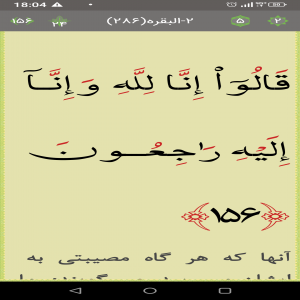 18:04
۱۵۶ ۲۳ ۲-البقره(۲۸۶) ۵ ۲
قَالُوٓا۟ إِنَّا لِلَّهِ وَإِنَّآ
إِلَيْهِ رَٰجِعُونَ
﴿۱۵۶﴾
آنها که هر گاه مصیبتی به